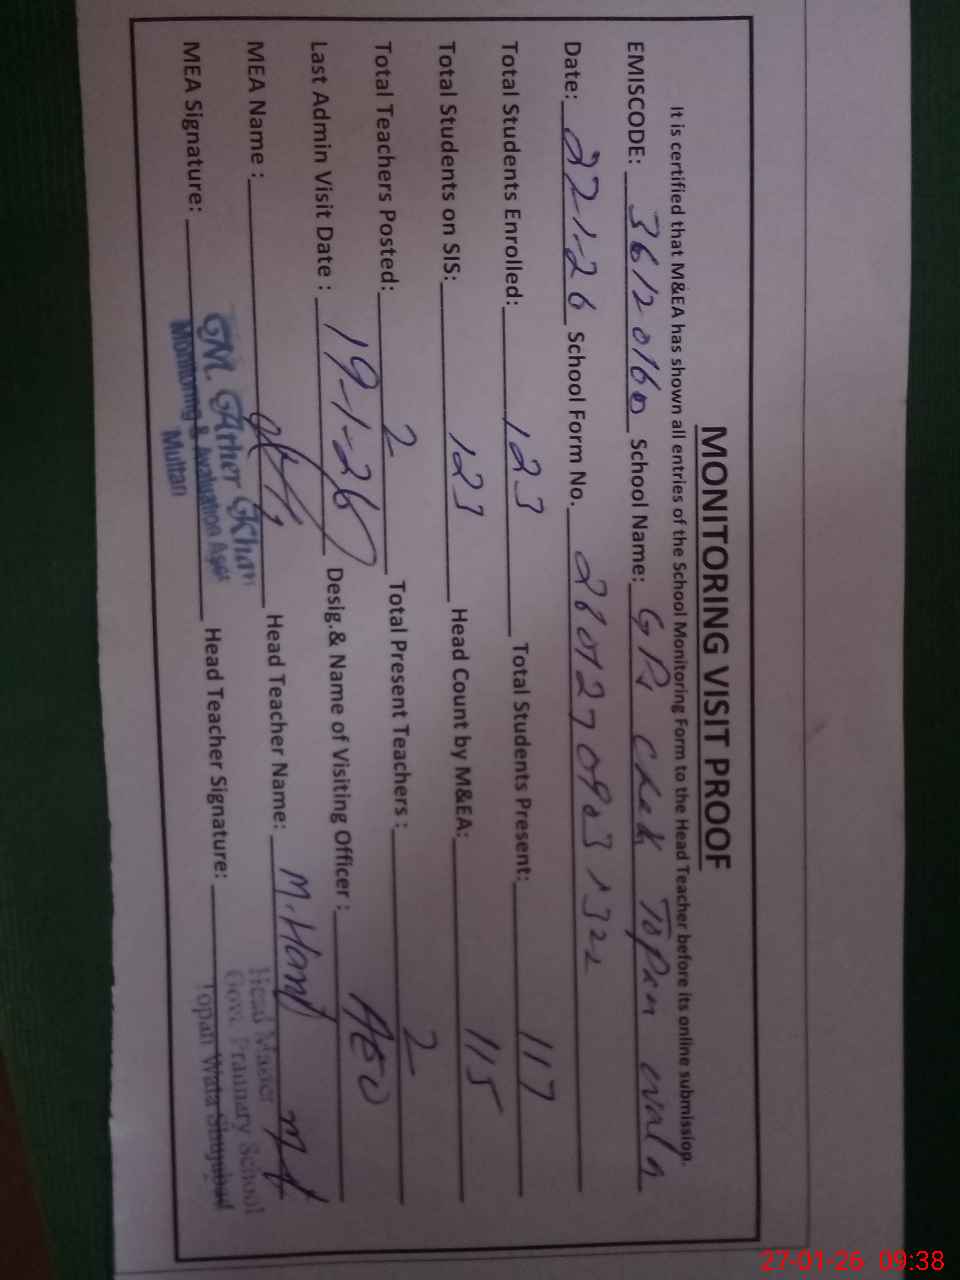 MONITORING VISIT PROOF
It is certified that M&EA has shown all entries of the School Monitoring Form to the Head Teacher before its online submission.
EMISCODE: 36120160 School Name: GPS Chak Topan wala
Date: 22-1-26 School Form No.
Total Students Enrolled: 123 Total Students Present: 117
Total Students on SIS: 123 Head Count by M&EA: 115
Total Teachers Posted: 2 Total Present Teachers : 2
Last Admin Visit Date : 19-1-26 Desig.& Name of Visiting Officer : AEO
MEA Name : Head Teacher Name: M.
MEA Signature: Head Teacher Signature:
M. Ather Khan
Monitoring & Evaluation
Multan
Head Master
Govt. Primary School
Topan Wala Shujabad
27-01-26 09:38